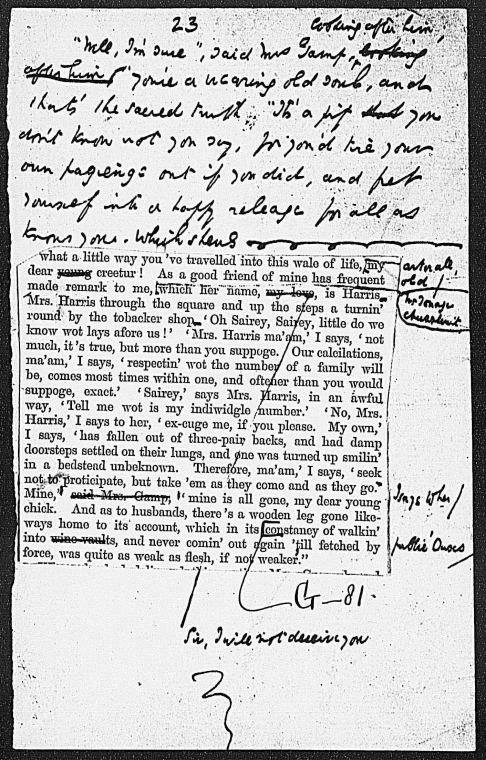 23
looking after him,
"Well, I'm sure", said Mrs Gamp, looking
after him, "you're a wearing old soul, and
that's the sacred truth. "It's a pity that you
don't know wot you say, for you'd tire your
own out if you did, and fret
yourself into a happy release for all as
knows you. Which shews
what a little way you've travelled into this wale of life, my
dear young creetur! As a good friend of mine has frequent
made remark to me, which her name, my love, is Harris,
Mrs. Harris through the square and up the steps a turnin'
round by the tobacker shop, 'Oh Sairey, Sairey, little do we
know wot lays afore us!' 'Mrs. Harris ma'am,' I says, 'not
much, it's true, but more than you suppoge. Our calcilations,
ma'am,' I says, 'respectin' wot the number of a family will
be, comes most times within one, and oftener than you would
suppoge, exact.' 'Sairey,' says Mrs. Harris, in an awful
way, 'Tell me wot is my indiwidgle number.' 'No, Mrs.
Harris,' I says to her, 'ex-cuge me, if you please. My own,'
I says, 'has fallen out of three-pair backs, and had damp
doorsteps settled on their lungs, and one was turned up smilin'
in a bedstead unbeknown. Therefore, ma'am,' I says, 'seek
not to proticipate, but take 'em as they come and as they go.'
Mine," said Mrs. Gamp, "mine is all gone, my dear young
chick. And as to husbands, there's a wooden leg gone like-
ways home to its account, which in its constancy of walkin'
into wine vaults, and never comin' out again 'till fetched by
force, was quite as weak as flesh, if not weaker."
arter all,
old
Mr
I says to her
public 'Ouses
G—81.
Sir, I will not deceive you